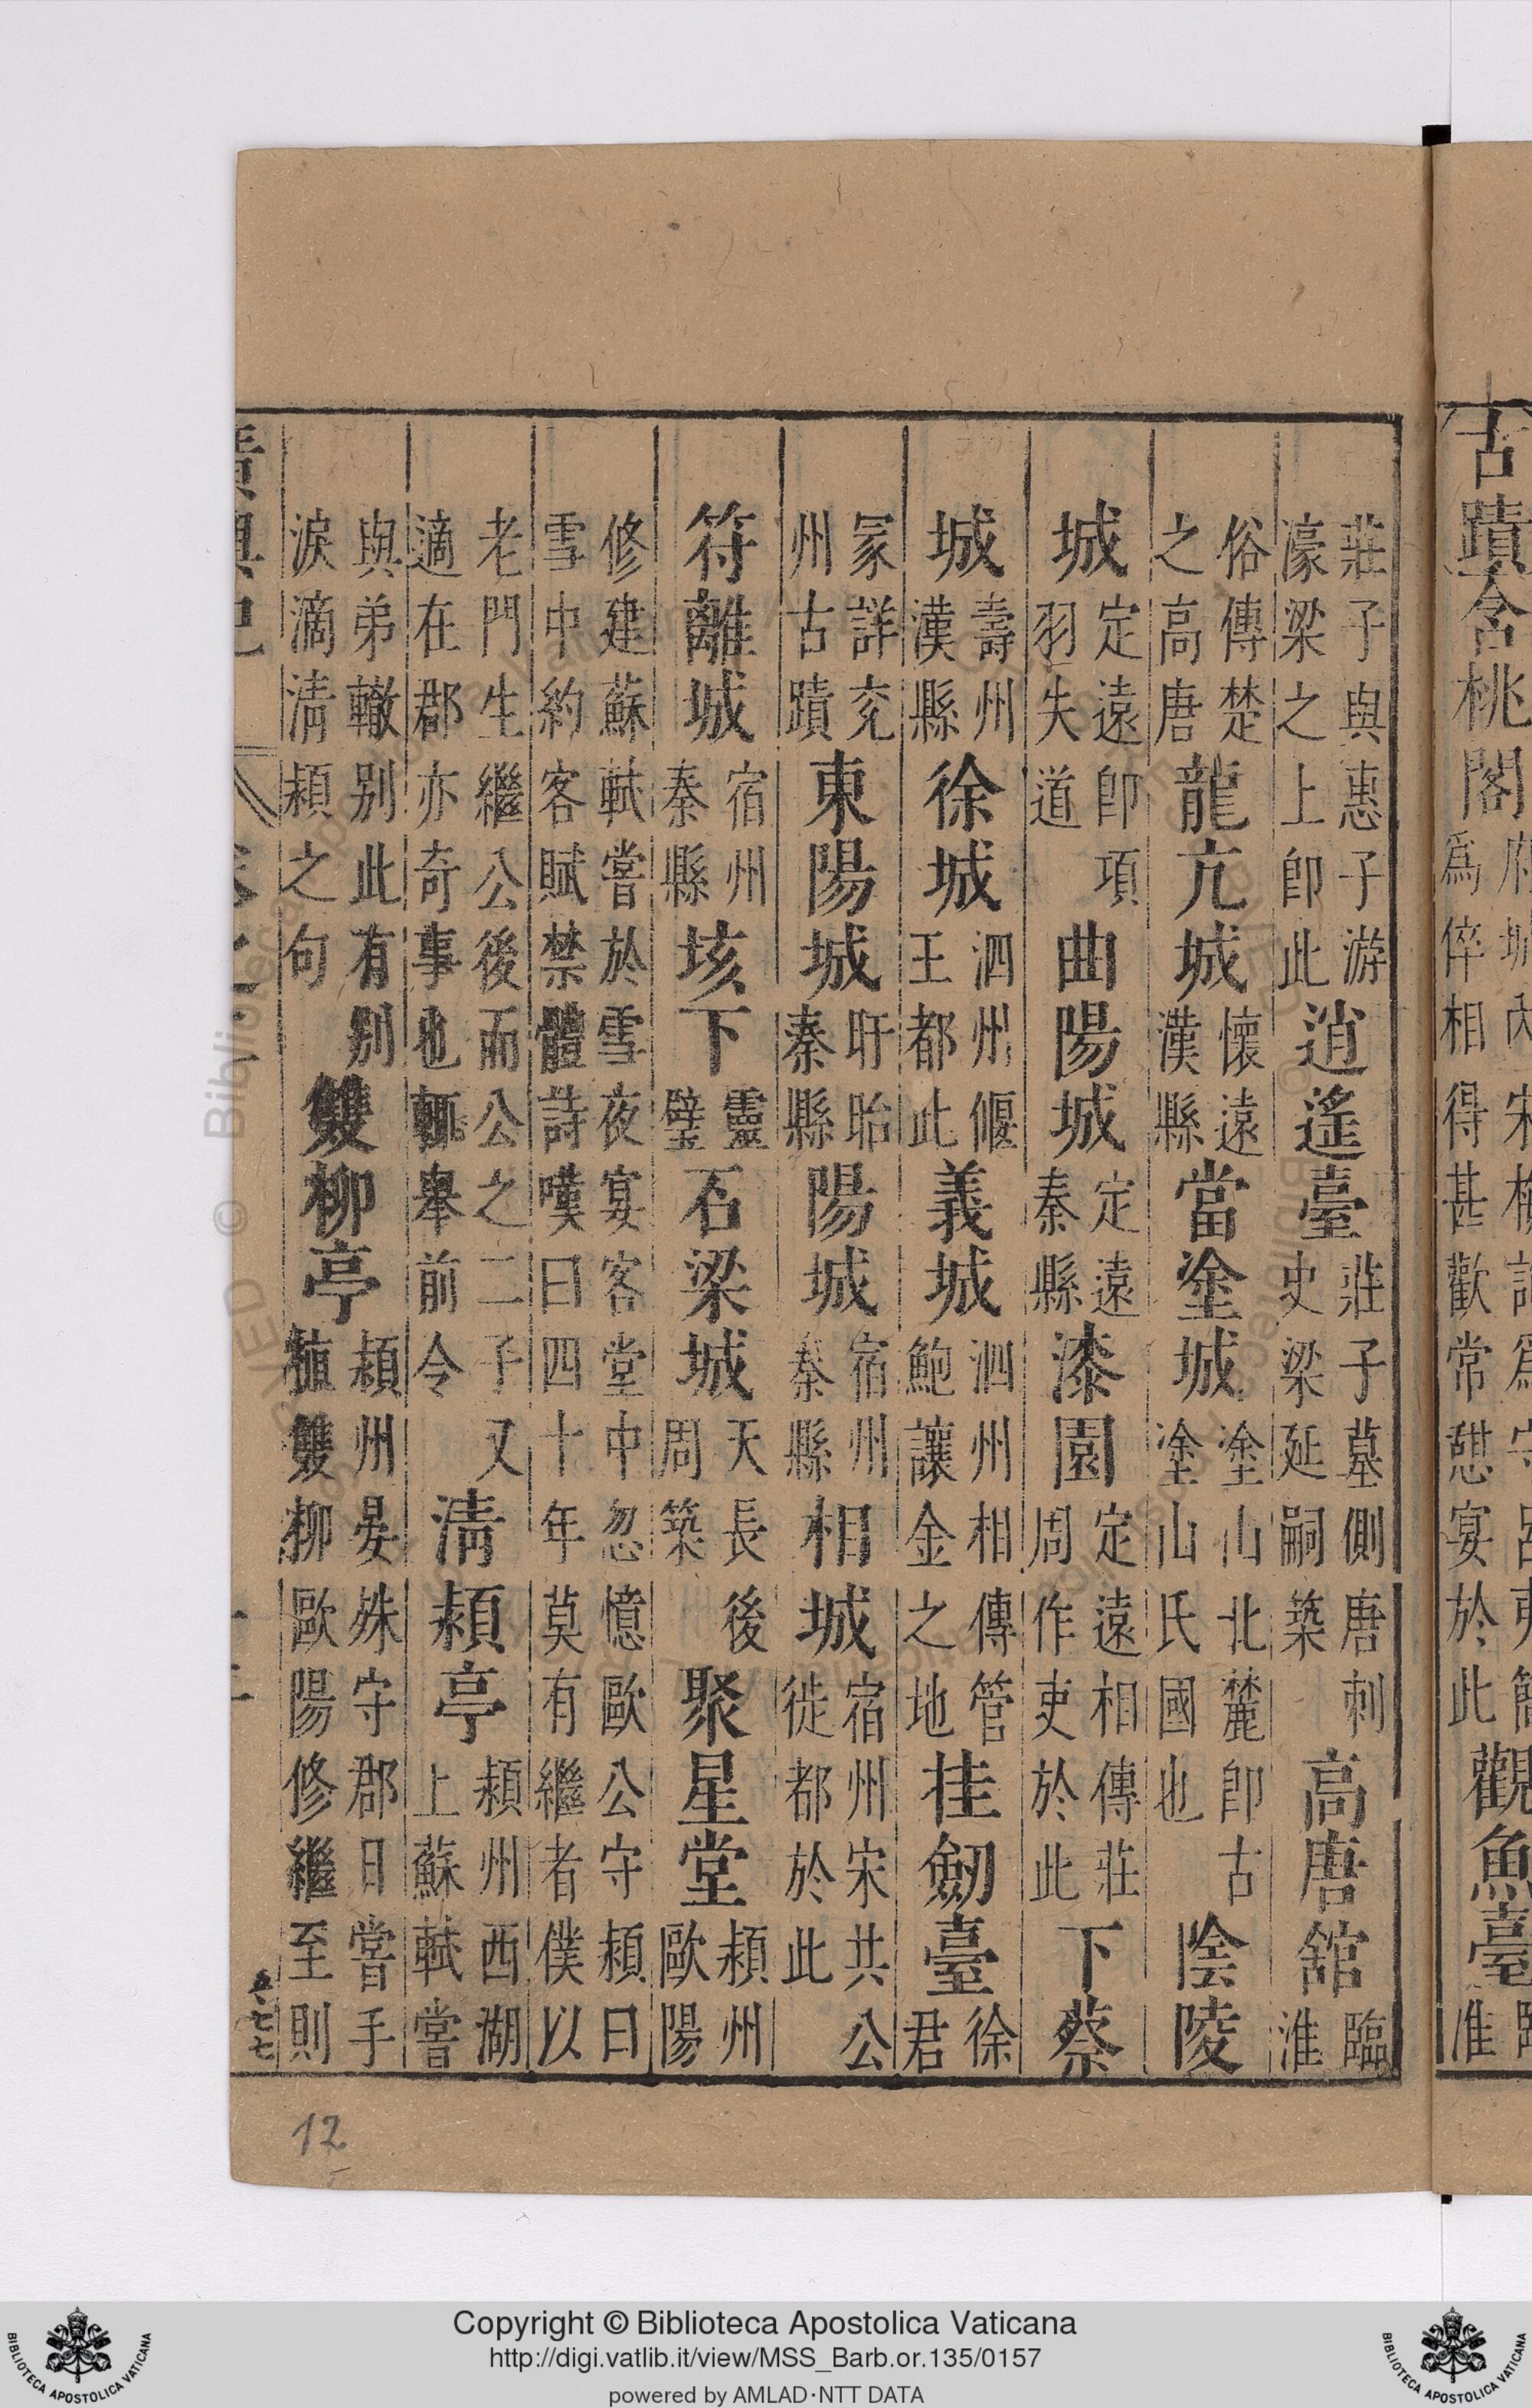 古蹟含桃閣
爲倅相得甚歡常憇宴於此
觀魚臺
淮
莊子與惠子游
濠梁之上卽此
逍遙臺
莊子墓側唐刺
史梁延嗣築
高唐舘
臨
淮
俗傳楚
之高唐
龍亢城
懷遠
漢縣
當塗城
塗山北麓卽古
塗山氏國也
陰陵
城
定遠卽項
羽失道
曲陽城
定遠
秦縣
漆園
定遠相傳莊
周作吏於此
下蔡
城
壽州
漢縣
徐城
泗州偃
王都此
義城
泗州相傳管
鮑讓金之地
挂劒臺
徐
君
冢詳兗
州古蹟
東陽城
盱眙
秦縣
陽城
宿州
秦縣
相城
宿州宋共公
徙都於此
符離城
宿州
秦縣
垓下
靈
璧
石梁城
天長後
周築
聚星堂
潁州
歐陽
修建蘇軾嘗於雪夜宴客堂中忽憶歐公守潁曰
雪中約客賦禁體詩嘆曰四十年莫有繼者僕以
老門生繼公後而公之二子又
適在郡亦奇事也輒舉前令
清潁亭
潁州西湖
上蘇軾嘗
與弟轍别此有别
淚滴清潁之句
雙柳亭
潁州晏殊守郡日嘗手
植雙柳歐陽修繼至則
12
Copyright © Biblioteca Apostolica Vaticana
http://digi.vatlib.it/view/MSS_Barb.or.135/0157
powered by AMLAD·NTT DATA